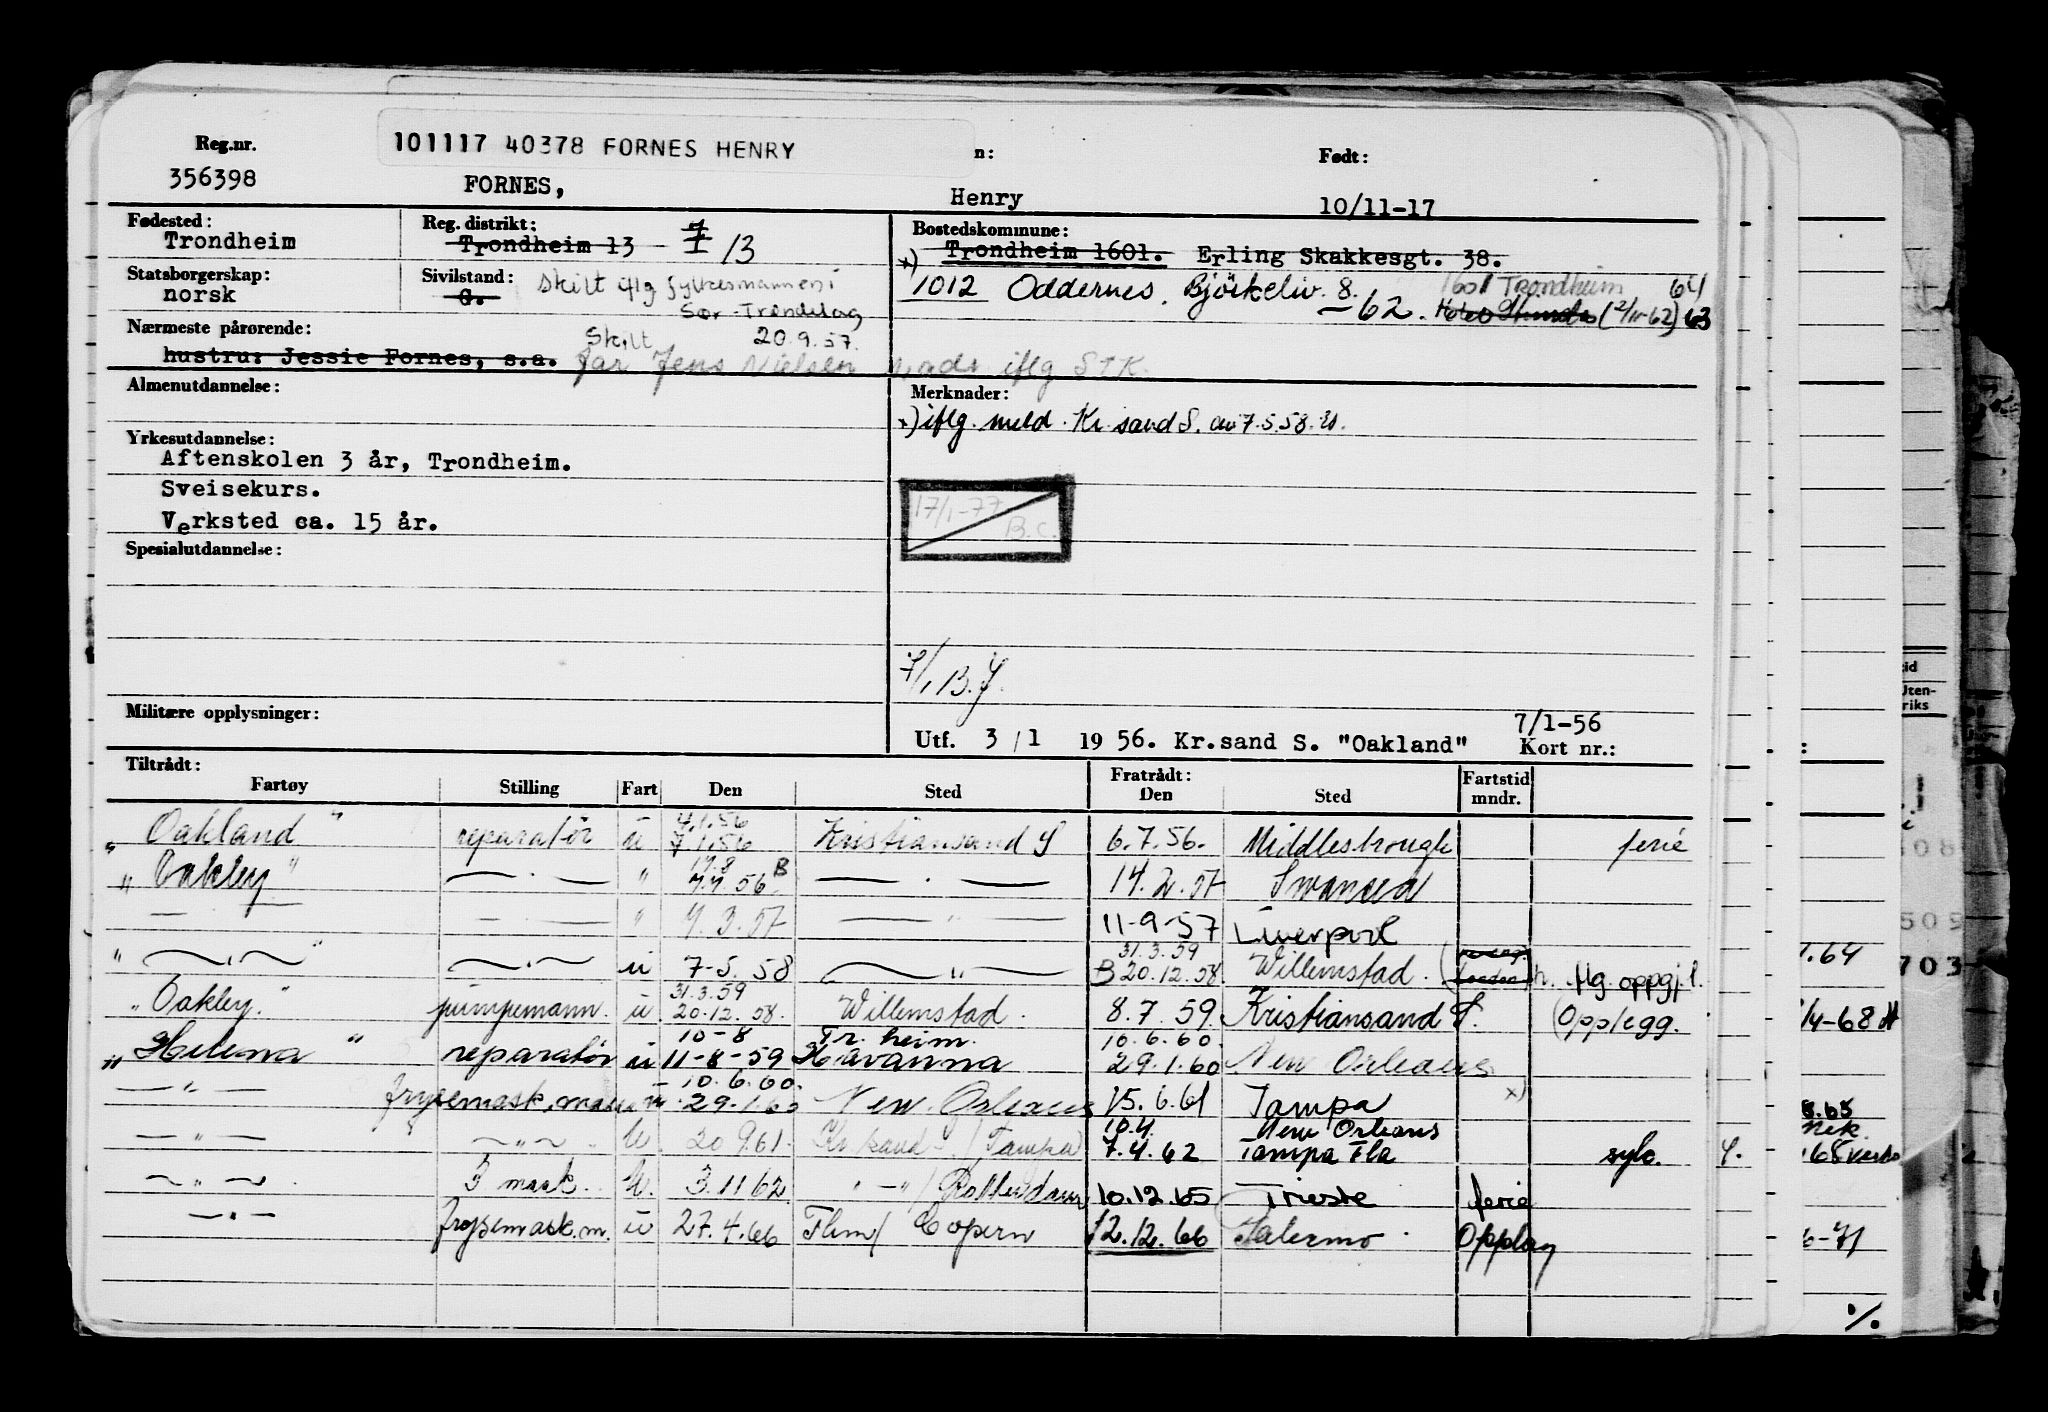 Reg.nr. 101117 40378 FORNES HENRY n: Født:
356398 FORNES, Henry 10/11-17
Fødested: Reg. distrikt: Bostedskommune:
Trondheim Trondheim 13 - 7/13 Trondheim 1601. Erling Skakkesgt. 38.
Statsborgerskap: Sivilstand: x) 1012 Oddernes. Björkeliv. 8. 1601 Trondheim 64
norsk G. Skilt iflg fylkesmannen i Sør-Trøndelag 20.9.57. -62. (2/11-62) 63
Nærmeste pårørende: Skilt
hustru: Jessie Fornes, s.a. far Jens Nielsen iflg STK.
Almenutdannelse: Merknader:
x) iflg. meld. Kr.sand S. av 7.5.58.
Yrkesutdannelse:
Aftenskolen 3 år, Trondheim.
Sveisekurs. 17/1-77
Verksted ca. 15 år. B.C.
Spesialutdannelse:
7/1 B.J.
Militære opplysninger: 7/1-56
Utf. 3/1 1956. Kr.sand S. "Oakland" Kort nr.:
Tiltrådt: Fratrådt: Fartstid
Fartøy Stilling Fart Den Sted Den Sted mndr.
4.1.56
"Oakland" reparatør u 7.1.56 Kristiansand S 6.7.56. Middlesbrough ferie
17.8 B
"Oakley" — . — " 7.7 56 — . — 14.2.57 Swansea
— — . — " 7.3.57 — " — 11-9-57 Liverpool
31.3.59
" — . — " — . — u 7-5.58 — " — B 20.12.58. Willemstad. flg. oppgj.
31.3.59
"Oakley." pumpemann. u 20.12.58. Willemstad. 8.7.59. Kristiansand S. (Opplegg.
10-8 Tr.heim. 10.6.60.
"Helena" reparatør u 11-8-59 Havanna 29.1.60 New Orleans
10.6.60.
— " — frysemask.mann u 29.1.60 New. Orleans 15.6.61 Tampa x)
10.4. New Orleans
— " — — " — . U. 20 9.61. Kr.sand S./Tampa 7.4.62 Tampa Fla syk.
— " — . 3 mask. U. 3.11 62 " — " / Rotterdam 10.12.65 Trieste ferie
— " — frysemask.m. u 27.4.66 12.12.66 Salermo Opplag